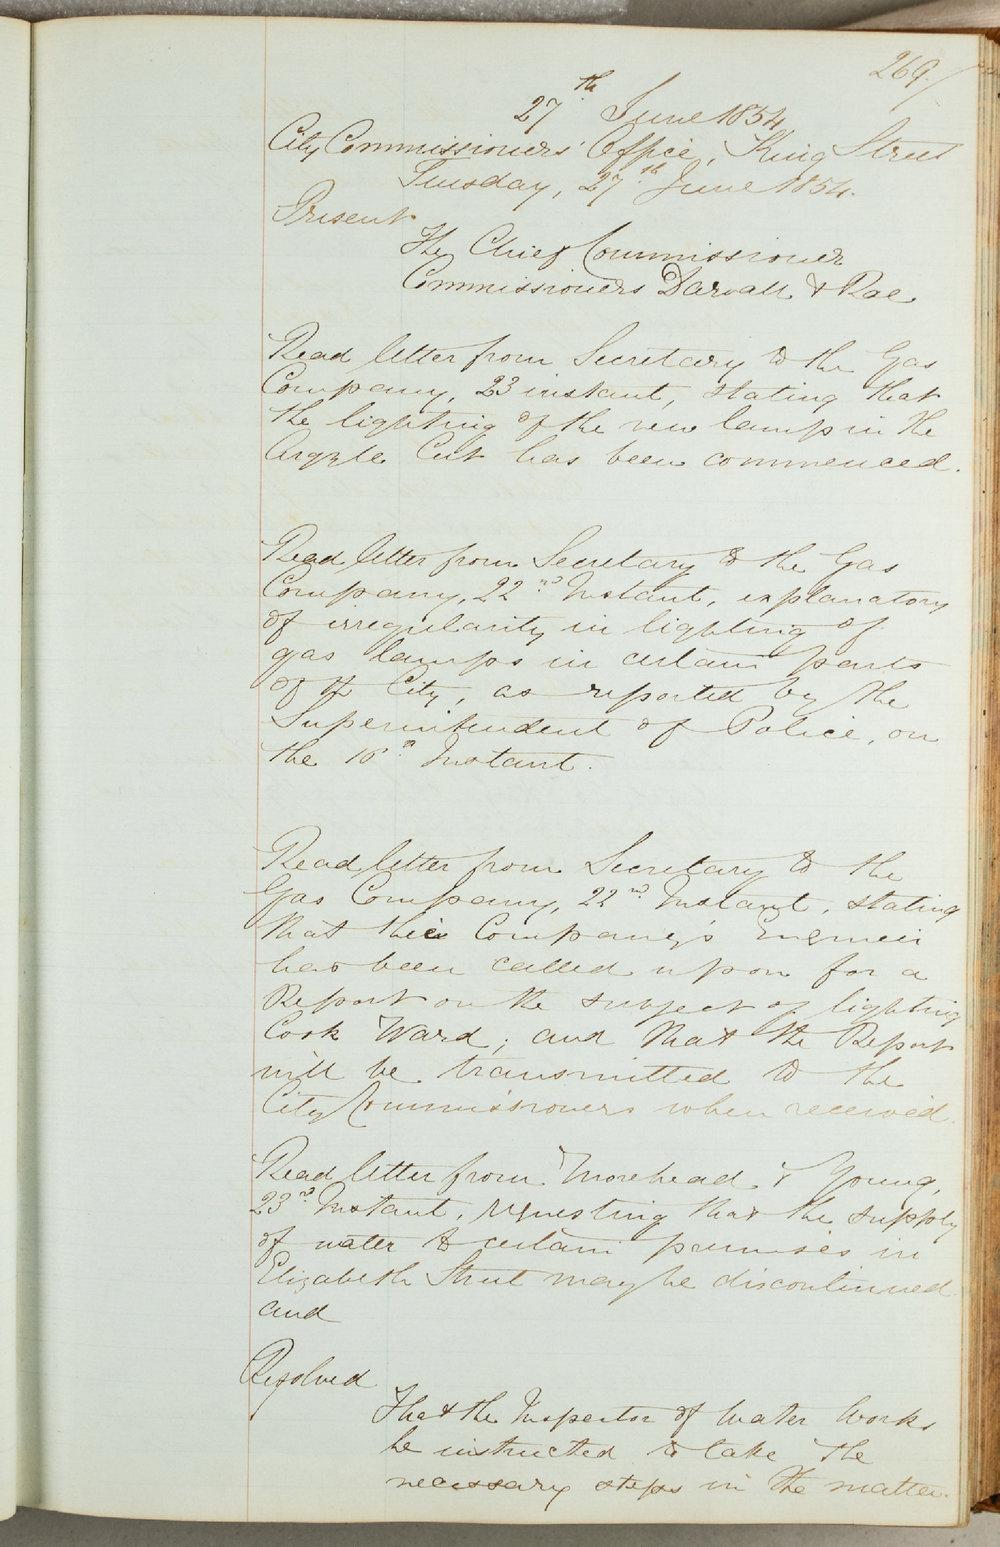 269./
27th June 1854
City Commissioners' Office, King Street
Tuesday, 27th June 1854.
Present
The Chief Commissioner
Commissioners Darvall & Rae
Read letter from Secretary to the Gas
Company, 23 instant, stating that
the lighting of the new lamp in the
Argyle Cut has been commenced.
Read letter from Secretary to the Gas
Company, 22nd Instant, explanatory
of irregularity in lighting of
gas lamps in certain parts
of the City, as reported by the
Superintendent of Police, on
the 16th Instant.
Read letter from Secretary to the
Gas Company, 22nd Instant, stating
that the Company's Engineer
has been called upon for a
Report on the subject of lighting
Cook Ward; and that the Report
will be transmitted to the
City Commissioners when received.
Read letter from Morehead & Young,
23rd Instant, requesting that the supply
of water to certain premises in
Elizabeth Street may be discontinued
and
Resolved
That the Inspector of Water Works
be instructed to take the
necessary steps in the matter.